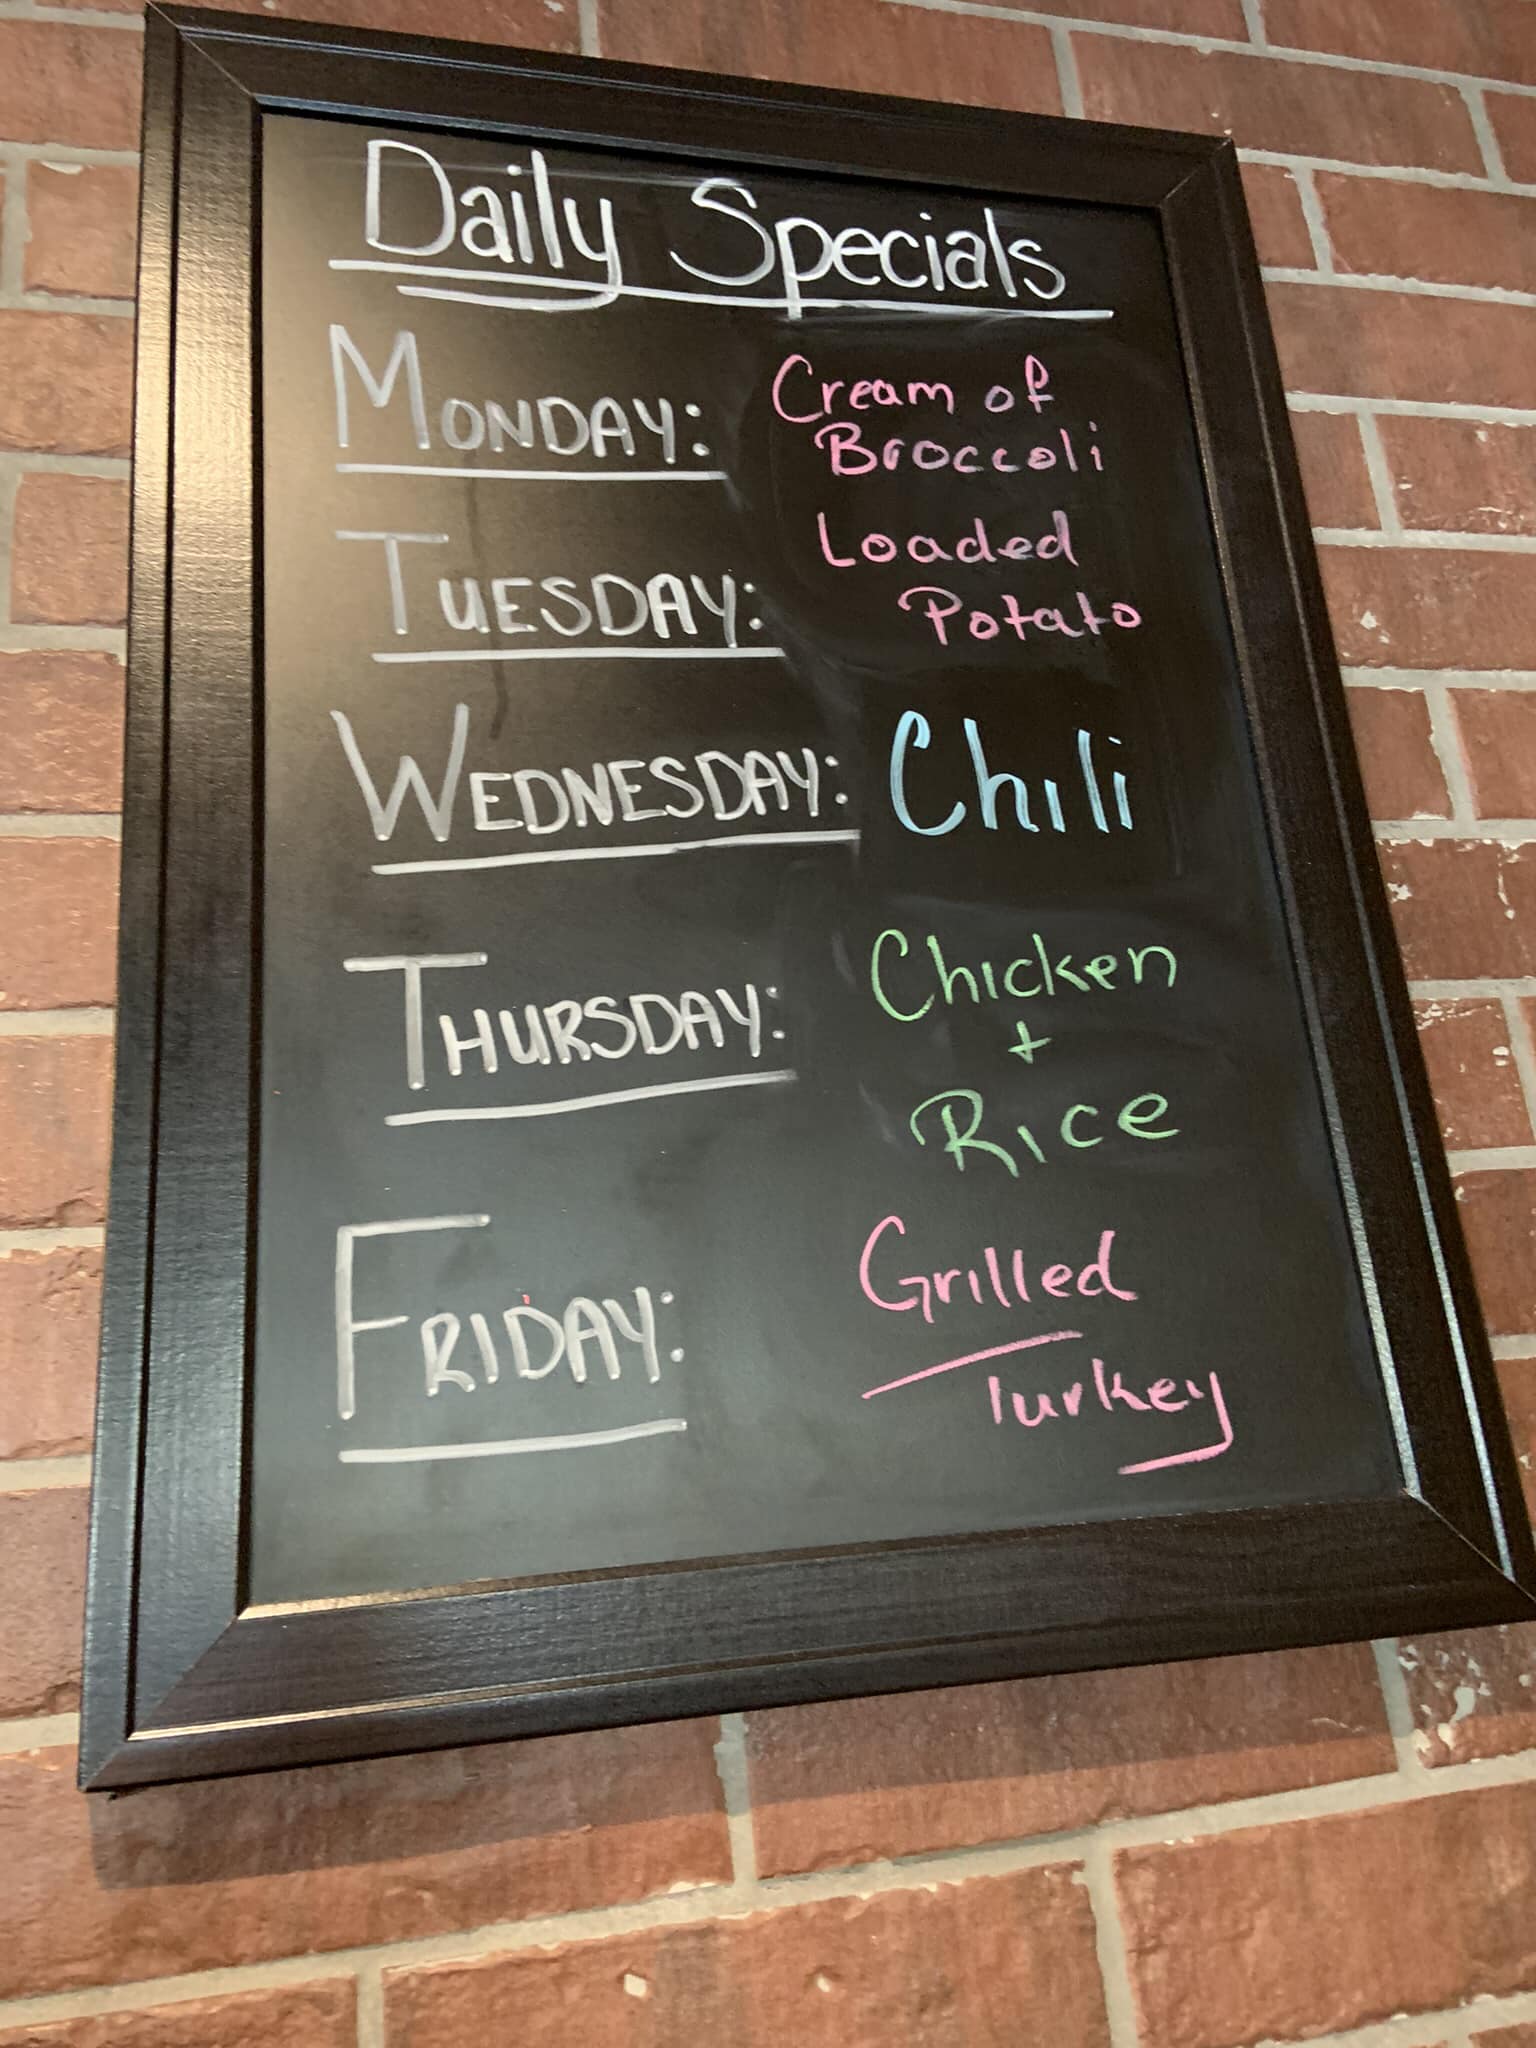 Daily Specials
MONDAY: Cream of
Broccoli
TUESDAY: Loaded
Potato
WEDNESDAY: Chili
THURSDAY: Chicken
+
Rice
FRIDAY: Grilled
Turkey